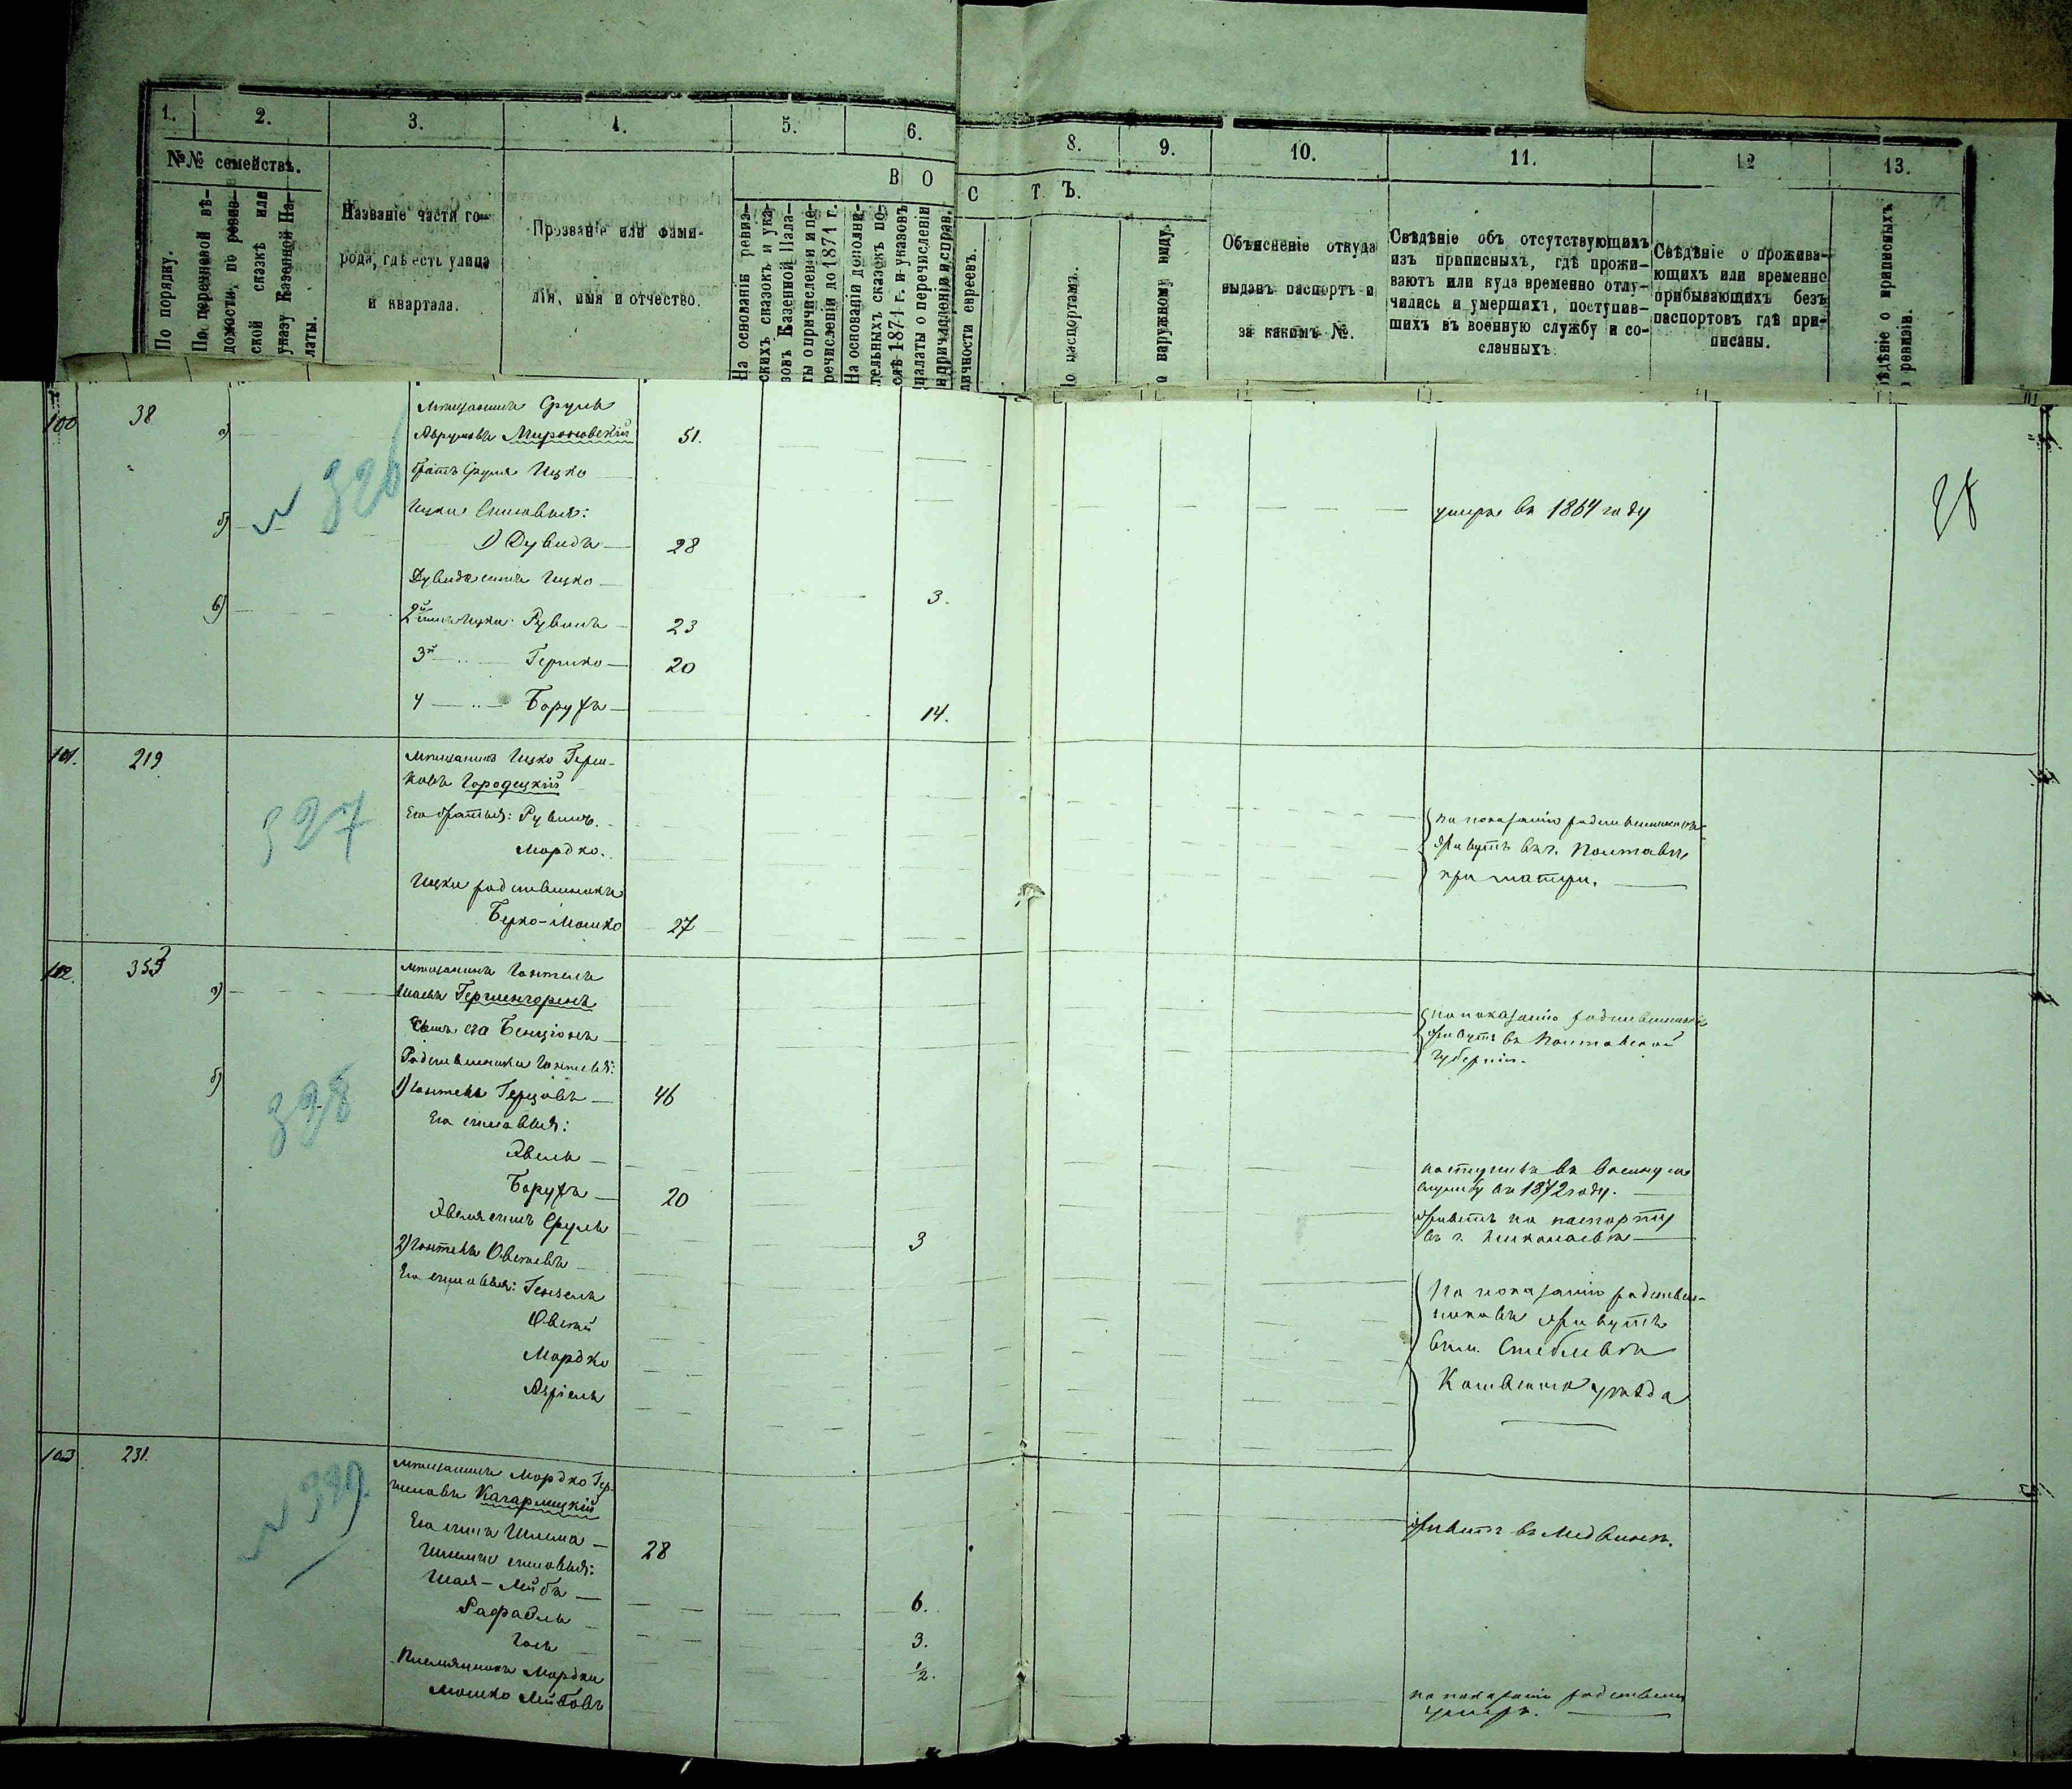 1. 2. 3. 4. 5. 6. 8. 9. 10. 11. 12 13.
№№ семействъ.
В О
С Т Ъ.
По порядку.
По перехновой вѣ-
домости, по ревиз-
ской сказкѣ или
указу Казенной Па-
латы.
Названіе части го-
рода, гдѣ есть улица
и квартала.
Прозваніе или фами-
лія, имя и отчество.
На основаніи ревиз-
скихъ сказокъ и ука-
зовъ Казенной Пала-
ты о причисленіи и пе-
речисленіи до 1871 г.
На основаніи дополни-
тельныхъ сказокъ по-
слѣ 1871 г. и указовъ
палаты о перечисленіи
и причисленіи и справ.
личности евреевъ.
по паспортамъ.
о наружному виду.
Объясненіе откуда
выданъ паспортъ и
за какимъ №.
Свѣдѣніе объ отсутствующихъ
изъ приписныхъ, гдѣ прожи-
ваютъ или куда временно отлу-
чились и умершихъ, поступив-
шихъ въ военную службу и со-
сланныхъ.
Свѣдѣніе о прожива-
ющихъ или временно
прибывающихъ безъ
паспортовъ гдѣ при-
писаны.
ѣдѣніе о приписныхъ
о ревизіи.
100 38 а) Мѣщанинъ Сруль
Аврумовъ Мироновскій 51.
братъ Сруля Ицко
28
№ 326
б) Ицки сыновья: умеръ въ 1864 году
1) Дувидъ 28
Дувида сынъ Ицко 3.
в) 2й сынъ Ицки Рувинъ 23
3й " Гершко 20
4 " Борухъ 14.
101. 219 Мѣщанинъ Ицко Герш-
ковъ Городецкій
327
Его братья: Рувинъ. по показанію родственниковъ
Мордко. живутъ въ г. Полтавѣ
при матери.
Ицки родственникъ
Берко-Мошко 27
102. 353 а) Мѣщанинъ
Шаевъ Гершенгоренъ
сынъ его Бенціонъ
по показанію родственниковъ
живутъ въ Полтавской
губерніи.
Родственники
б) 1) Герцовъ 46
328
Его сыновья:
Авель поступилъ въ военную
службу въ 1872 году.
Борухъ 20 живетъ по паспорту
въ г. Николаевѣ
Авеля сынъ Сруль 3
2) Овсеевъ
Его сыновья: Гензель
Овсей
Мордко
Азріель
По показанію родствен-
никовъ живутъ
въ м. Стеблевѣ
Каневскаго уѣзда
103. 231. Мѣщанинъ Мордко Гер-
шковъ Кагарлицкій
№ 329
живетъ въ Медвинѣ.
Его сынъ Шлема 28
Шлемы сыновья:
Шая-Лейба 6.
Рафаель 3.
1/2.
Племянникъ Мордки
Мошко Лейбовъ
по показанію родственн.
умеръ.